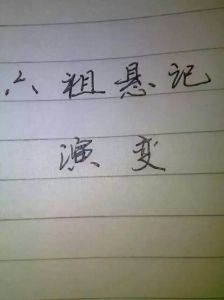 六祖悬记
演变